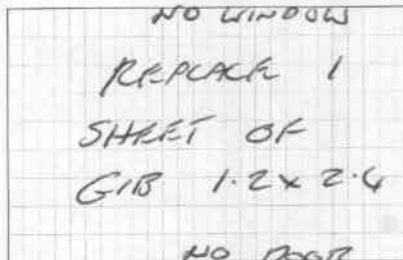 NO WINDOW
REPLACE 1
SHEET OF
GIB 1.2 x 2.4
NO DOOR